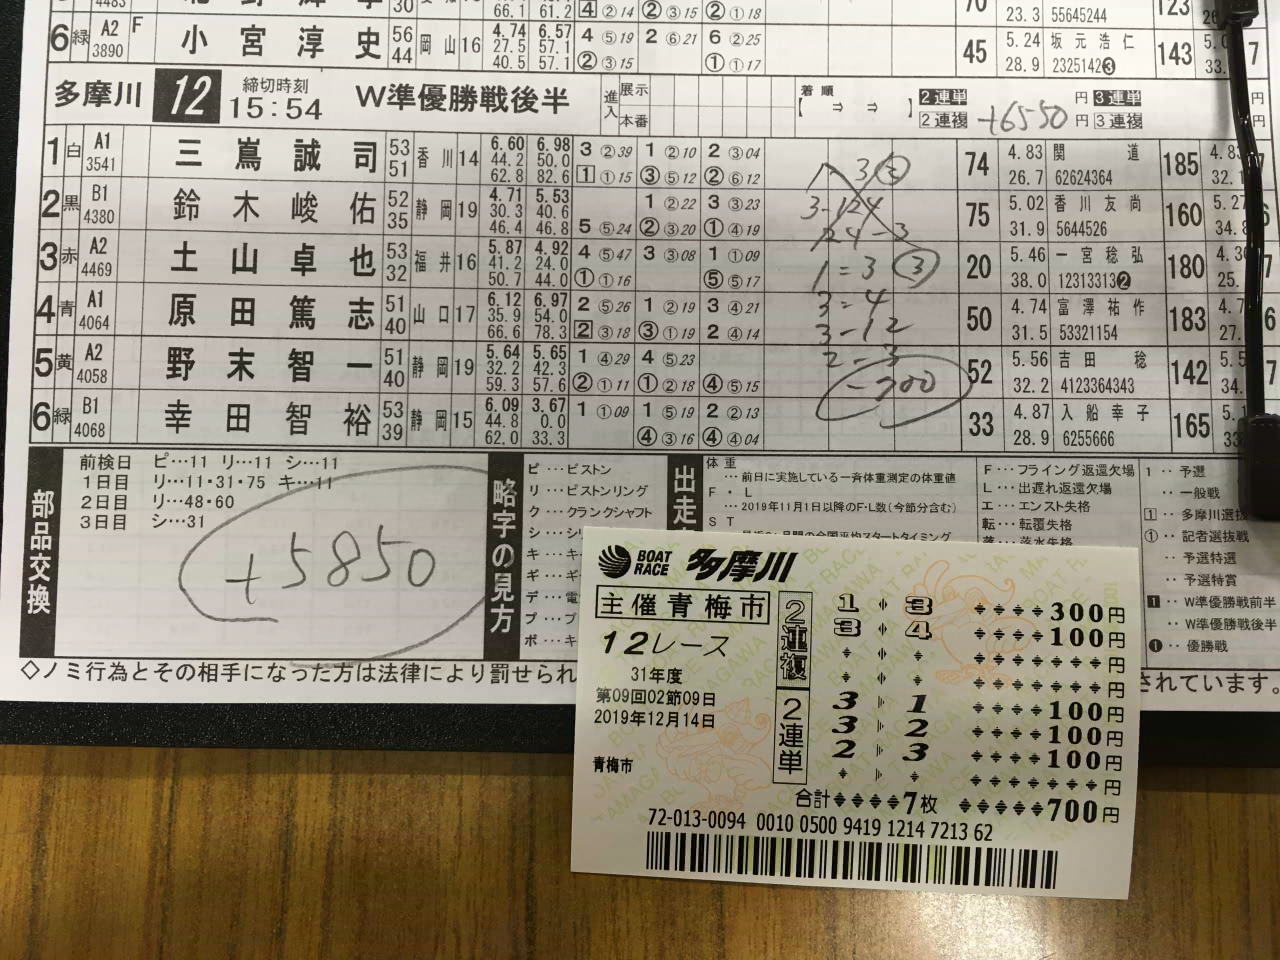 6 緑 A2 3890 F 小宮淳史 56 44 岡山 16 4.74 27.5 40.5 6.57 57.1 57.1 4 ⑤19 ② ③15 2 ⑥21 6 ②25 ① ①17 45 5.24 28.9 坂元浩仁 2325142❸ 143
多摩川 12 締切時刻 15:54 W準優勝戦後半 進入 展示 本番 着順 【 ⇒ ⇒ 】 2連単 2連複 +6550 円 円 3連単 3連複 円 円
1 白 A1 3541 三嶌誠司 53 51 香川 14 6.60 44.2 62.8 6.98 50.0 82.6 3 ②39 1 ①15 1 ②10 ③ ⑤12 2 ③04 ② ⑥12 74 4.83 26.7 関道 62624364 185
2 黒 B1 4380 鈴木峻佑 52 35 静岡 19 4.71 30.3 46.4 5.53 40.6 46.8 5 ⑤24 1 ②22 ② ③20 3 ③23 ① ④19 75 5.02 31.9 香川友尚 5644526 160
3 赤 A2 4469 土山卓也 53 32 福井 16 5.87 41.2 50.7 4.92 24.0 44.0 4 ⑤47 ① ①16 3 ③08 1 ①09 ⑤ ⑤17 20 5.46 38.0 一宮稔弘 12313313❷ 180
4 青 A1 4064 原田篤志 51 40 山口 17 6.12 35.9 66.6 6.97 54.0 78.3 2 ⑤26 2 ③18 1 ②19 ③ ①19 3 ④21 2 ④14 50 4.74 31.5 富澤祐作 53321154 183
5 黄 A2 4058 野末智一 51 40 静岡 19 5.64 32.2 59.3 5.65 42.3 57.6 1 ④29 ② ①11 4 ⑤23 ① ②18 ④ ⑤15 52 5.56 32.2 吉田稔 4123364343 142
6 緑 B1 4068 幸田智裕 53 39 静岡 15 6.09 44.8 62.0 3.67 0.0 33.3 1 ①09 1 ⑤19 ④ ③16 2 ②13 ④ ④04 33 4.87 28.9 入船幸子 6255666 165
3-124
24-3
1=3 ③
3=4
3-12
2-3
-700
部品交換
前検日 ピ…11 リ…11 シ…11
1日目 リ…11・31・75 キ…11
2日目 リ…48・60
3日目 シ…31
+5850
略字の見方
ピ…ピストン
リ…ピストンリング
ク…クランクシャフト
出走
体重
…前日に実施している一斉体重測定の体重値
F・L
…2019年11月1日以降のF・L数(今節分含む)
ST
F…フライング返還欠場
L…出遅れ返還欠場
エ…エンスト失格
転…転覆失格
1‥予選
‥一般戦
1‥多摩川選抜
①‥記者選抜戦
‥予選特選
‥予選特賞
1‥W準優勝戦前半
‥W準優勝戦後半
❶‥優勝戦
◇ノミ行為とその相手になった方は法律により罰せられ
されています。
BOAT RACE 多摩川
主催青梅市
12レース
31年度
第09回02節09日
2019年12月14日
青梅市
2連複
1 3 300円
3 4 100円
2連単
3 1 100円
3 2 100円
2 3 100円
合計 7枚 700円
72-013-0094 0010 0500 9419 1214 7213 62